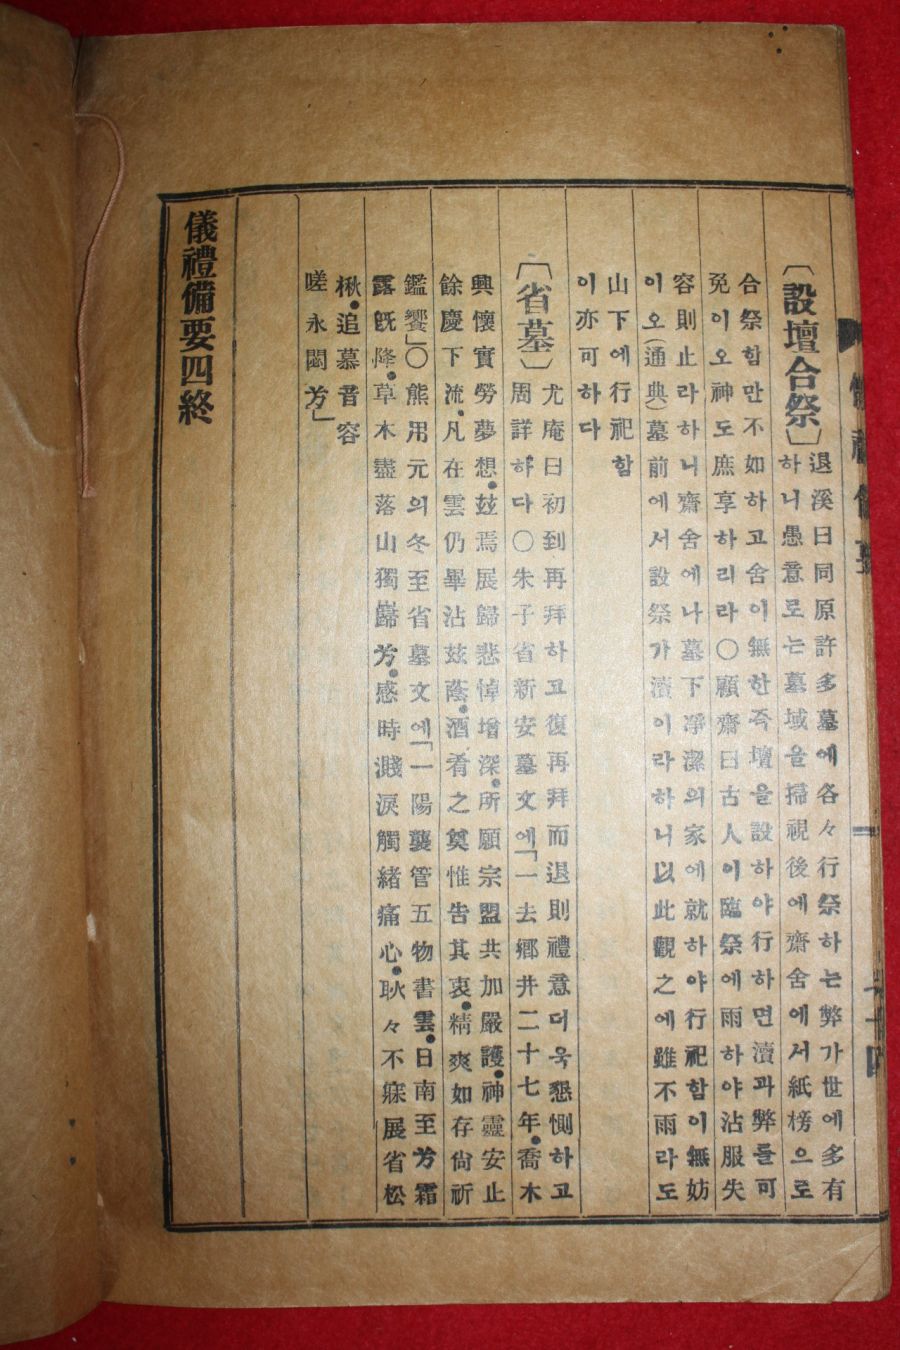 〔設壇合祭〕退溪曰同原許多墓에各々行祭하는弊가世에多有
하니愚意로는墓域을掃視後에齋舍에서紙榜으로
合祭함만不如하고舍이無한즉壇을設하야行하면瀆과弊를可
免이오神도庶享하리라〇顧齋曰古人이臨祭에雨하야沾服失
容則止라하니齋舍에나墓下凈潔의家에就하야行祀함이無妨
이오(通典)墓前에서設祭가瀆이라하니以此觀之에雖不雨라도
山下에行祀함
이亦可하다
〔省墓〕尤庵曰初到再拜하고復再拜而退則禮意더욱懇惻하고
周詳하다〇朱子省新安墓文에「一去鄕井二十七年喬木
興懷實勞夢想玆焉展歸悲悼增深所願宗盟共加嚴護神靈安止
餘慶下流凡在雲仍畢沾玆蔭酒肴之奠惟告其衷精爽如存尙祈
鑑饗」〇熊用元의冬至省墓文에「一陽襲管五物書雲日南至芳霜
露旣降草木盡落山獨歸芳感時濺淚觸緖痛心耿々不寐展省松
楸追慕音容
嗟永閟芳」
儀禮備要四終